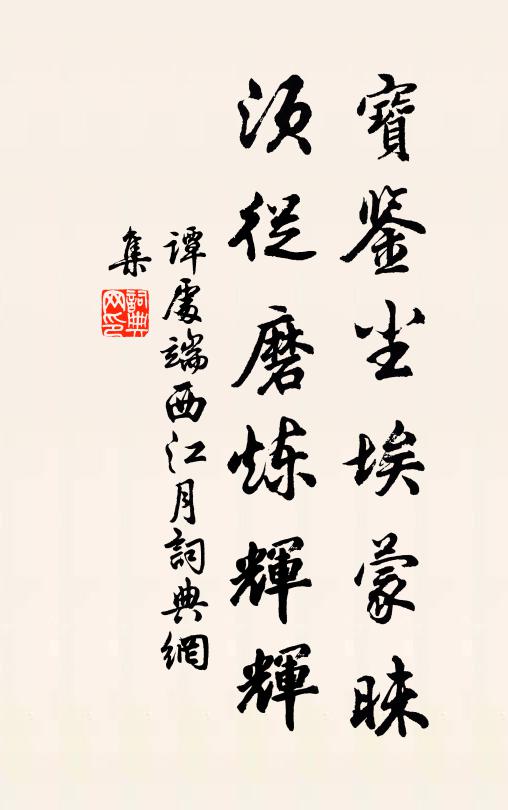 寶鉴尘埃蒙昧
须從磨炼輝輝
谭處端西江月詞典網
集
詞典网印